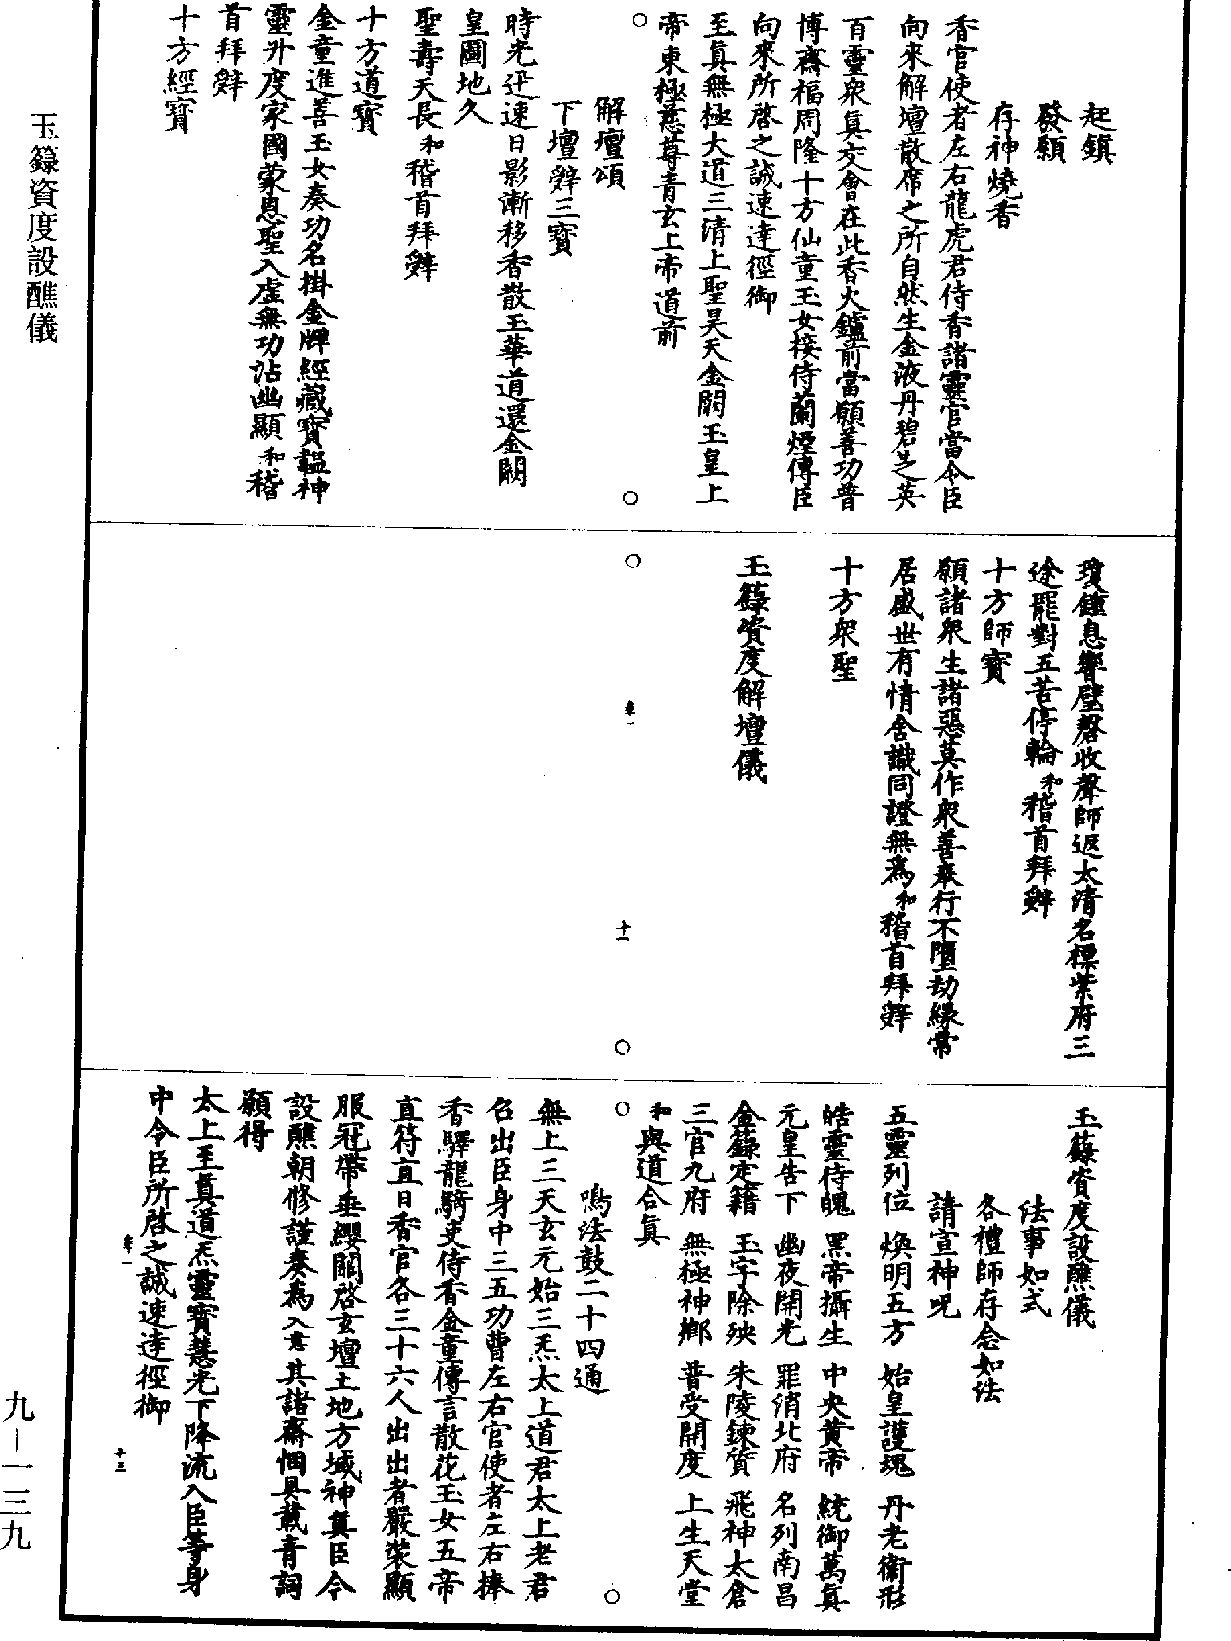 起鎮
發願
存神燒香
香官使者左右龍虎君侍香諸靈官當令臣
向來解壇散席之所自然生金液丹碧芝英
百靈衆真交會在此香火鑪前當願善功普
博齋福周隆十方仙童玉女接侍蘭煙傳臣
向來所啓之誠速達徑御
至真無極大道三清上聖昊天金闕玉皇上
帝東極慈尊青玄上帝道前
解壇頌
下壇辭三寶
時光迅速日影漸移香散玉華道還金闕
皇圖地久
聖壽天長和稽首拜辭
十方道寶
金童進善玉女奏功名掛金牌經藏寶韞神
靈升度家國蒙恩聖入虛無功沾幽顯和稽
首拜辭
十方經寶
瓊鐘息響璧磬收聲師返太清名標紫府三
途罷對五苦停輪和稽首拜辭
十方師寶
願諸衆生諸惡莫作衆善奉行不墮劫緣常
居盛世有情含識同證無爲和稽首拜辭
十方衆聖
玉籙資度解壇儀
卷一
十一
玉籙資度設醮儀
法事如式
各禮師存念如法
請宣神呪
五靈列位 煥明五方 始皇護魂 丹老衛形
皓靈侍魄 黑帝攝生 中央黄帝 統御萬真
元皇告下 幽夜開光 罪消北府 名列南昌
金籙定籍 玉字除殃 朱陵鍊質 飛神太倉
三官九府 無極神鄉 普受開度 上生天堂
和與道合真
鳴法鼓二十四通
無上三天玄元始三炁太上道君太上老君
召出臣身中三五功曹左右官使者左右捧
香驛龍騎吏侍香金童傳言散花玉女五帝
直符直日香官各三十六人出出者嚴裝顯
服冠帶垂纓關啓玄壇土地方域神真臣今
設醮朝修謹奏爲入意其諸齋悃具載青詞
願得
太上至真道炁靈寶慧光下降流入臣等身
中令臣所啓之誠速達徑御
卷一
十三
玉籙資度設醮儀
九—一三九